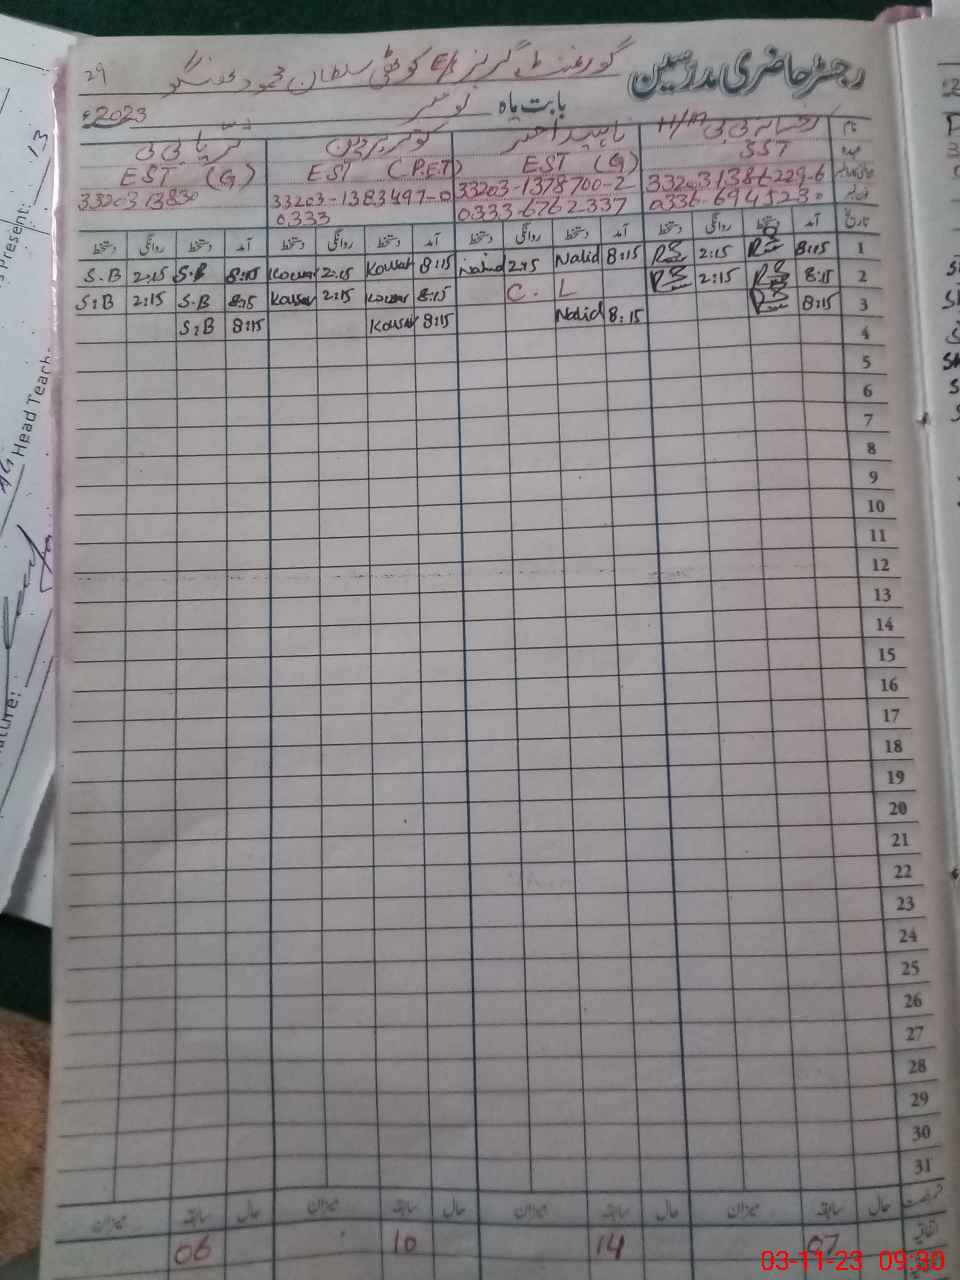 رجسٹر حاضری مدرسین گورنمنٹ گرلز E/S کوٹلی سلطان محمود 29
بابت ماہ نومبر 2023ء
نام H/M بی بی ناہید اختر کوثر پروین ثریا بی بی
عہدہ SST EST (G) EST (P.E.T) EST (G)
33203-1378700-2 33203-1383497-0 33203 13830
0333-6762337 0333
تاریخ آمد دستخط روانگی دستخط آمد دستخط روانگی دستخط آمد دستخط روانگی دستخط آمد دستخط روانگی دستخط
1 8:15 2:15 8:15 Nalid 2:15 Nalid 8:15 Kousar 2:15 Kousar 8:15 S.B 2:15 S.B
2 8:15 2:15 C. L 8:15 Kousar 2:15 Kousar 8:15 S.B 2:15 S:B
3 8:15 8:15 Nalid 8:15 Kousar 8:15 S:B
4
5
6
7
8
9
10
11
12
13
14
15
16
17
18
19
20
21
22
23
24
25
26
27
28
29
30
31
رخصت حال سابقہ میزان حال سابقہ میزان حال سابقہ میزان حال سابقہ میزان
اتفاقیہ 07 14 10 06
03-11-23 09:30
Present: 13
Head Teach